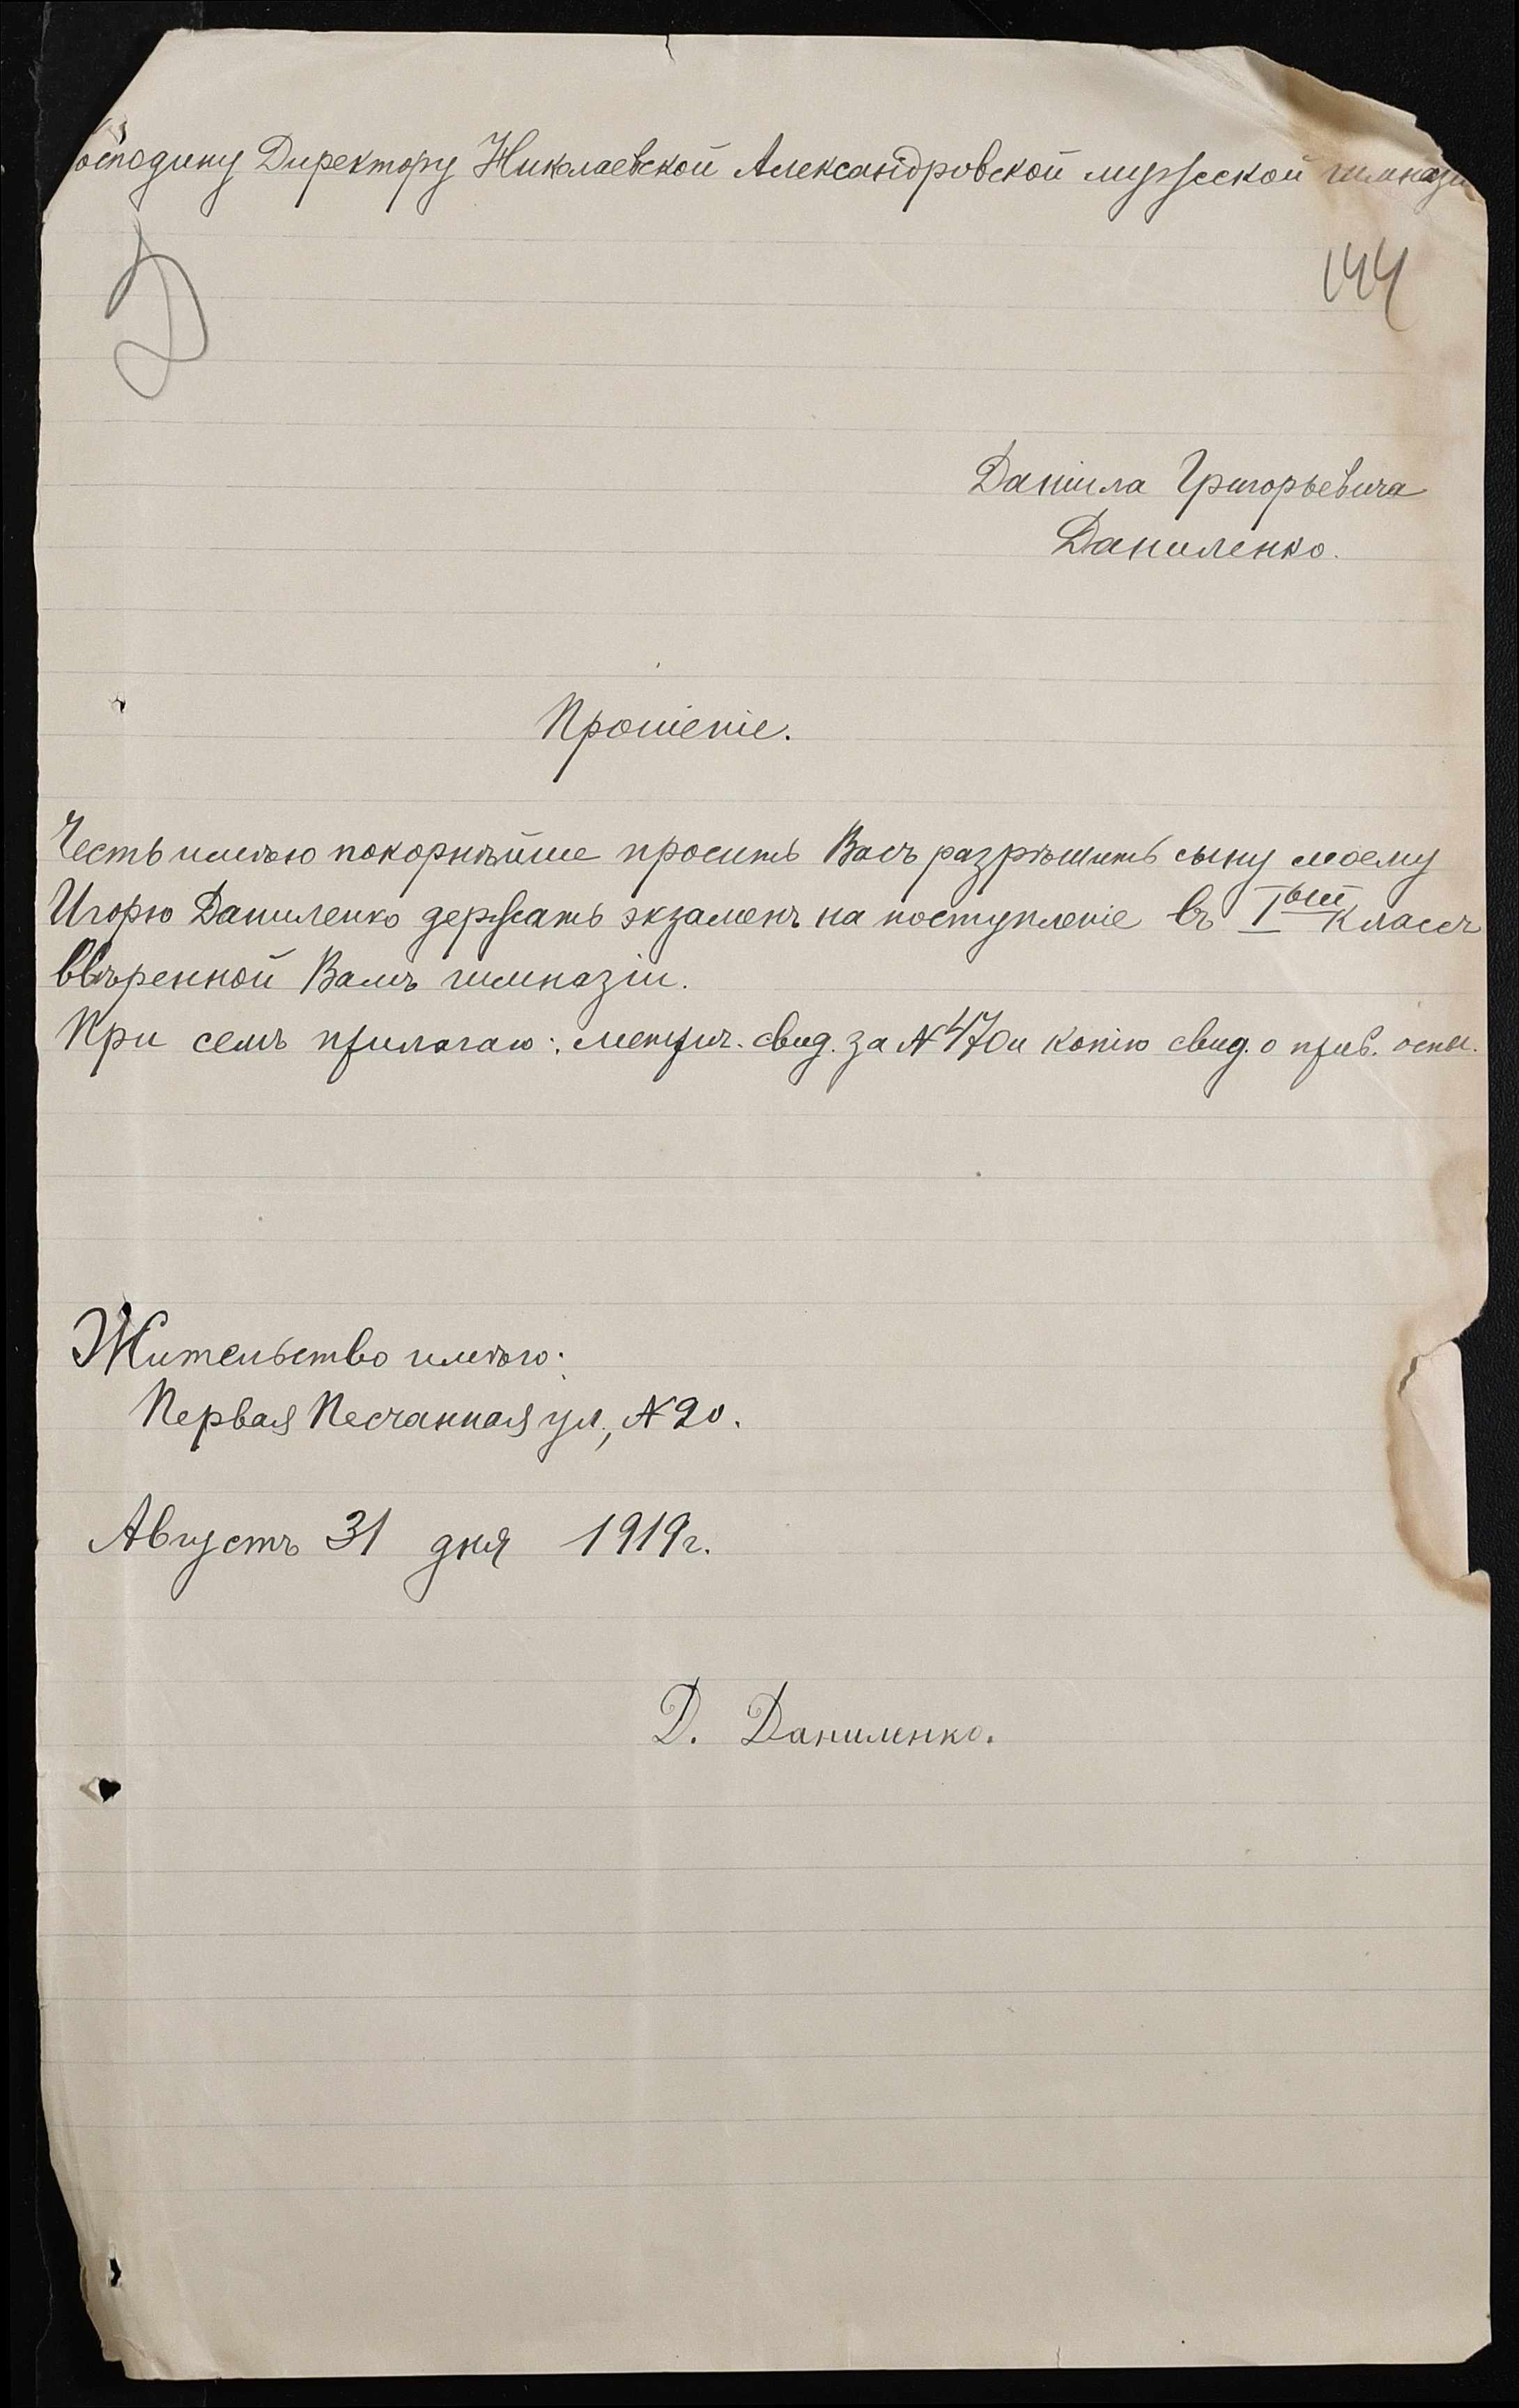 осподину Директору Николаевской Александровской мужеской гимназі
Д
144
Даніила Григорьевича
Даниленко.
Прошеніе.
Честь имѣю покорнѣйше просить Васъ разрѣшить сыну моему
Игорю Даниленко держать экзаменъ на поступленіе въ Iый классъ
ввѣренной Вамъ гимназіи.
При семъ прилагаю: метрич. свид. за № 470 и копію свид. о прив. оспы.
Жительство имѣю:
Первая Песчанная ул., № 20.
Августъ 31 дня 1919 г.
Д. Даниленко.